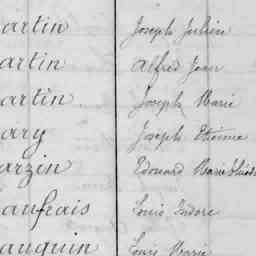 artin Joseph Julien
artin Alfred Jean
artin Joseph Marie
ary Joseph Etienne
arzin Edouard Marie
aufrais Louis Isidore
auquin Louis Marie